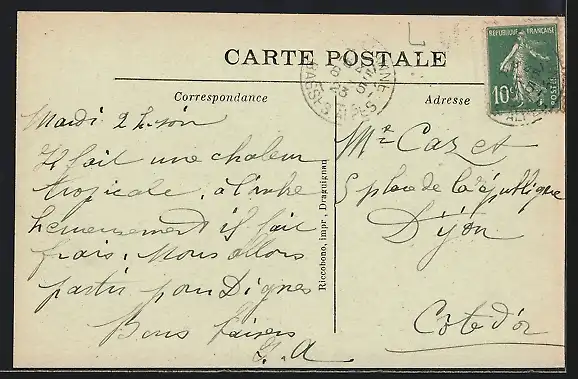 CARTE POSTALE
Correspondance
Adresse
RÉPUBLIQUE FRANÇAISE
10c
POSTES
BASSES-ALPES
Mardi 2 h. soir
Il fait une chaleur
tropicale, à l'ombre
heureusement il fait
frais. Nous allons
partir pour Dignes
Bons baisers
J. A
Riccobono, impr., Draguignan
Mr Cazet
5 place de la république
Dijon
Cote d'or